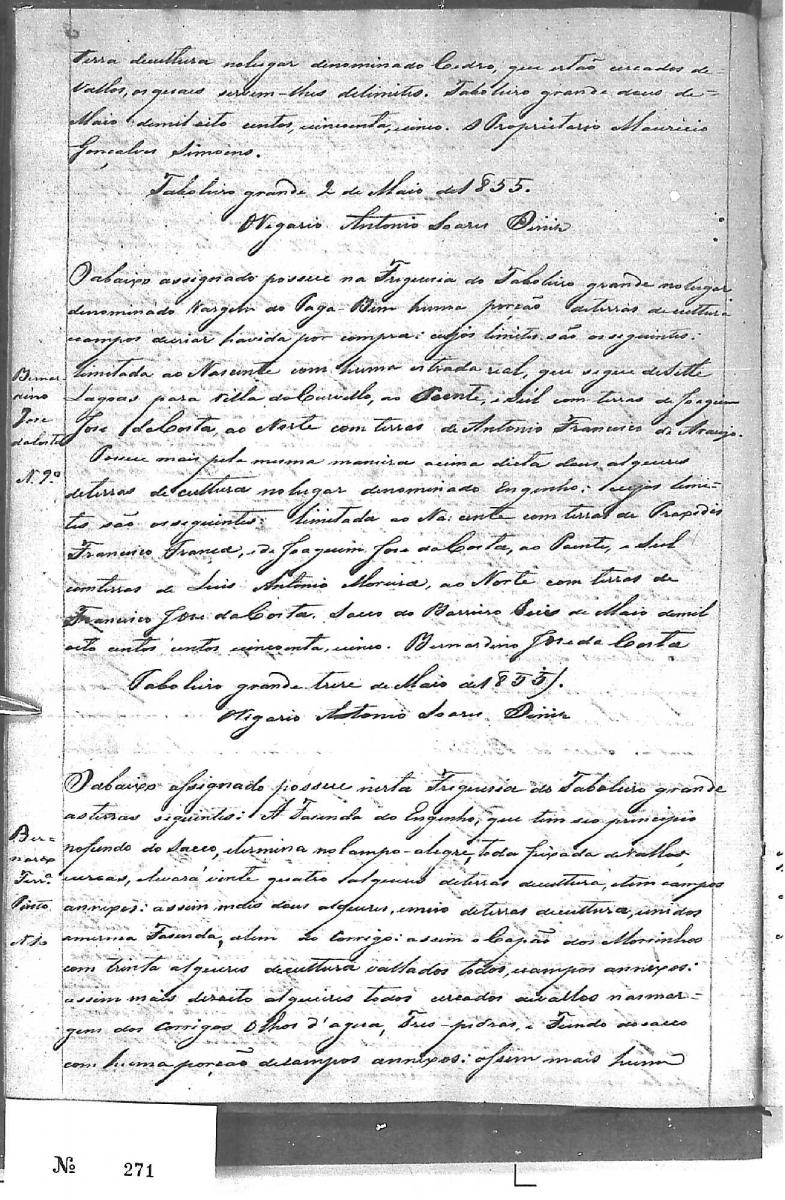 terra decultura nolugar denominado Cedro, que estão cercados de-
Vallos, os quaes servem-lhes delimites. Taboleiro grande dous de-
Maio demil oito centos, cincoenta, cinco. O Proprietario Mauricio
Gonçalves Simoens.
Taboleiro grande 2 de Maio de 1855.
OVigario Antonio Soares Diniz
Oabaixo assignado possue na Freguesia do Taboleiro grande nolugar
denominado Vargem do Paga-Bem huma porção deterras decultura
ecampos decriar havida por compra: cujos limites são osseguintes:
limitada ao Nascente com huma estrada real, que segue deSette
Lagoas para Villa doCurvello, ao Poente, eSul com terras de Joaquim
Jose daCosta, ao Norte com terras de Antonio Francisco de Araujo.
Possue mais pela mesma maneira acima dicta dous alqueires
deterras decultura nolugar denominado Engenho: cujos limi-
tes são osseguintes: limitada ao Nacente comterras de Praxedes
Francisco França, ede Joaquim Jose daCosta, ao Poente, e Sul
comterras de Luis Antonio Moreira, ao Norte com terras de
Francisco Jose daCosta. Sacco do Barreiro Seis de Maio demil
oito centos centos cincoenta, cinco. Bernardino Jose da Costa
Bernar-
dino
Jose
daCosta
N. 9º
Taboleiro grande treze de Maio de 1855.
OVigario Antonio Soares Diniz
Oabaixo assignado possue nesta Freguesia do Taboleiro grande
asterras siguintes: A Fasenda do Engenho, que tem seo principio
nofundo do Sacco, etermina noCampo-alegre, toda feixada deVallos,
ecercas, elevará vinte quatro alqueires deterras decultura, etem campos
annexos: assim mais dous alqueires, emeio deterras decultura, unidos
amesma Fasenda, alem do Corrigo: assim o Capão dos Morinhos
com trinta alqueires decultura vallados todos, ecampos annexos:
assim mais desoito alqueires todos cercados devallos nasmar-
gens dos Corrigos Olhos d'agua, Tres-pedras, e Fundo dosacco
com huma porção decampos annexos: assim mais hum
Ber-
Ferrª
Pinto
N. 10
Nº 271